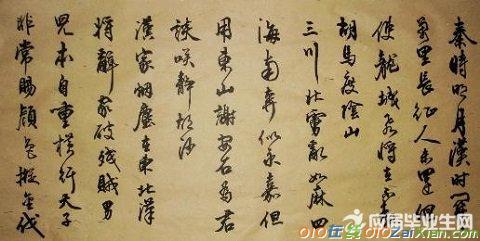 秦時明月漢時關
萬里長征人未還但
使龍城飛將在不教
胡馬度陰山
三川北虜亂如麻四
海南奔似永嘉但
用東山謝安石為君
談咲靜胡沙
漢家烟塵在東北漢
將辭家破殘賊男
兒本自重橫行天子
非常賜顏色摐金伐
应届毕业生网
010在线 010ZaiXian.com